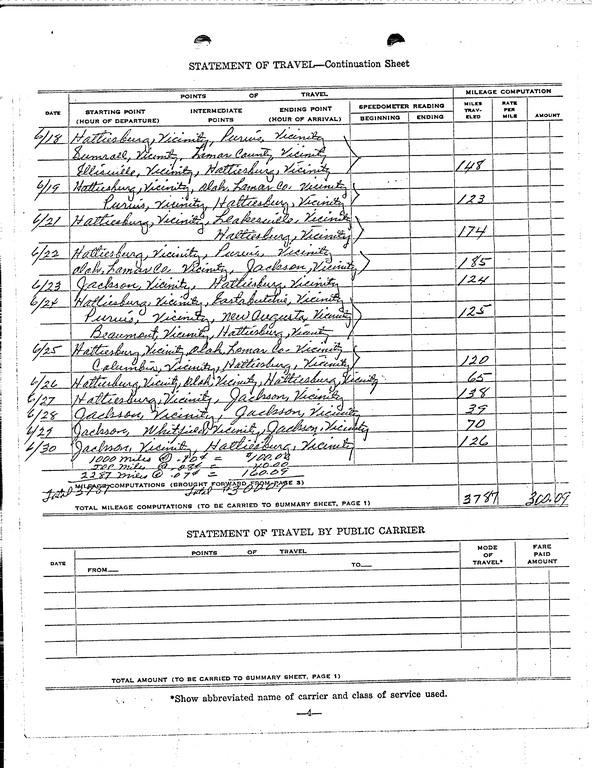 STATEMENT OF TRAVEL—Continuation Sheet
POINTS OF TRAVEL
MILEAGE COMPUTATION
DATE
STARTING POINT (HOUR OF DEPARTURE)
INTERMEDIATE POINTS
ENDING POINT (HOUR OF ARRIVAL)
SPEEDOMETER READING
BEGINNING ENDING
MILES TRAV- ELED
RATE PER MILE
AMOUNT
6/18 Hattiesburg, Vicinity, Purvis, Vicinity
Sumrall, Vicinity, Lamar County, Vicinity
Ellisville, Vicinity, Hattiesburg, Vicinity 148
6/19 Hattiesburg, Vicinity, Oloh, Lamar Co. Vicinity
Purvis, Vicinity, Hattiesburg, Vicinity 123
6/21 Hattiesburg, Vicinity, Leakesville, Vicinity
Hattiesburg, Vicinity 174
6/22 Hattiesburg, Vicinity, Purvis, Vicinity
Oloh, Lamar Co. Vicinity, Jackson, Vicinity 185
6/23 Jackson, Vicinity, Hattiesburg, Vicinity 124
6/24 Hattiesburg, Vicinity, Eastabutchie, Vicinity
Purvis, Vicinity, New Augusta, Vicinity 125
Beaumont, Vicinity, Hattiesburg,
6/25 Hattiesburg, Vicinity, Oloh, Lamar Co. Vicinity
Columbia, Vicinity, Hattiesburg, Vicinity 120
6/26 Hattiesburg, Vicinity, Oloh, Vicinity, Hattiesburg, Vicinity 65
6/27 Hattiesburg, Vicinity, Jackson, Vicinity 138
6/28 Jackson, Vicinity, Jackson, Vicinity 39
6/29 Jackson, Whitfield, Vicinity, Jackson, Vicinity 70
6/30 Jackson, Vicinity, Hattiesburg, Vicinity 126
1000 miles @ .10¢ = $100.00
500 miles @ .08¢ = 40.00
2287 miles @ .07¢ = 160.09
MILEAGE COMPUTATIONS (BROUGHT FORWARD FROM PAGE 3)
Total 3787 Total $300.09
TOTAL MILEAGE COMPUTATIONS (TO BE CARRIED TO SUMMARY SHEET, PAGE 1) 3787 300.09
STATEMENT OF TRAVEL BY PUBLIC CARRIER
DATE
POINTS OF TRAVEL
FROM— TO—
MODE OF TRAVEL*
FARE PAID AMOUNT
TOTAL AMOUNT (TO BE CARRIED TO SUMMARY SHEET, PAGE 1)
*Show abbreviated name of carrier and class of service used.
—4—